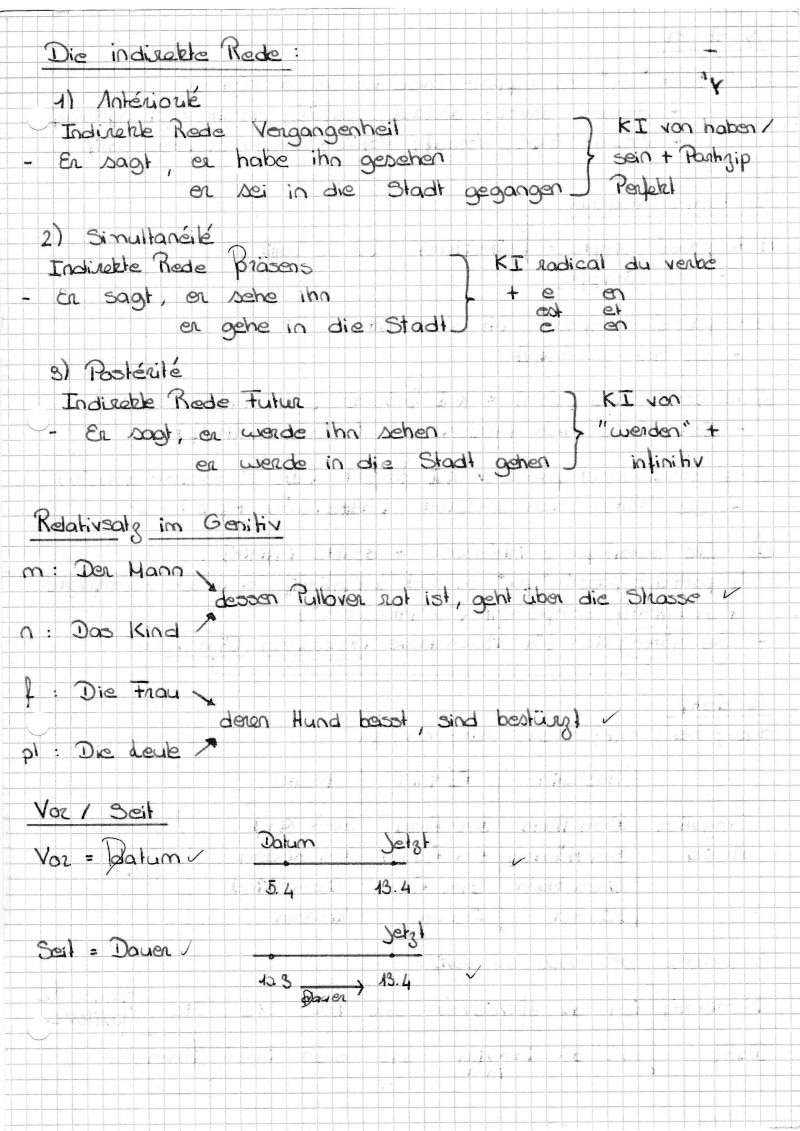 Die indirekte Rede :
1) Antériorité
Indirekte Rede Vergangenheit
- Er sagt, er habe ihn gesehen
er sei in die Stadt gegangen
KI von haben /
sein + Partizip
Perfekt
2) Simultanéité
Indirekte Rede Präsens
- Er sagt, er sehe ihn
er gehe in die Stadt
KI radical du verbe
+ e en
est et
e en
3) Postérité
Indirekte Rede Futur
- Er sagt, er werde ihn sehen
er werde in die Stadt gehen
KI von
"werden" +
infinitiv
Relativsatz im Genitiv
m : Der Mann
dessen Pullover rot ist, geht über die Strasse ✓
n : Das Kind
f : Die Frau
deren Hund basst, sind bestürzt ✓
pl : Die Leute
Vor / Seit
Vor = Datum ✓
Datum Jetzt
5.4 13.4 ✓
Seit = Dauer ✓
Jetzt
12.3 → 13.4 ✓
Dauer